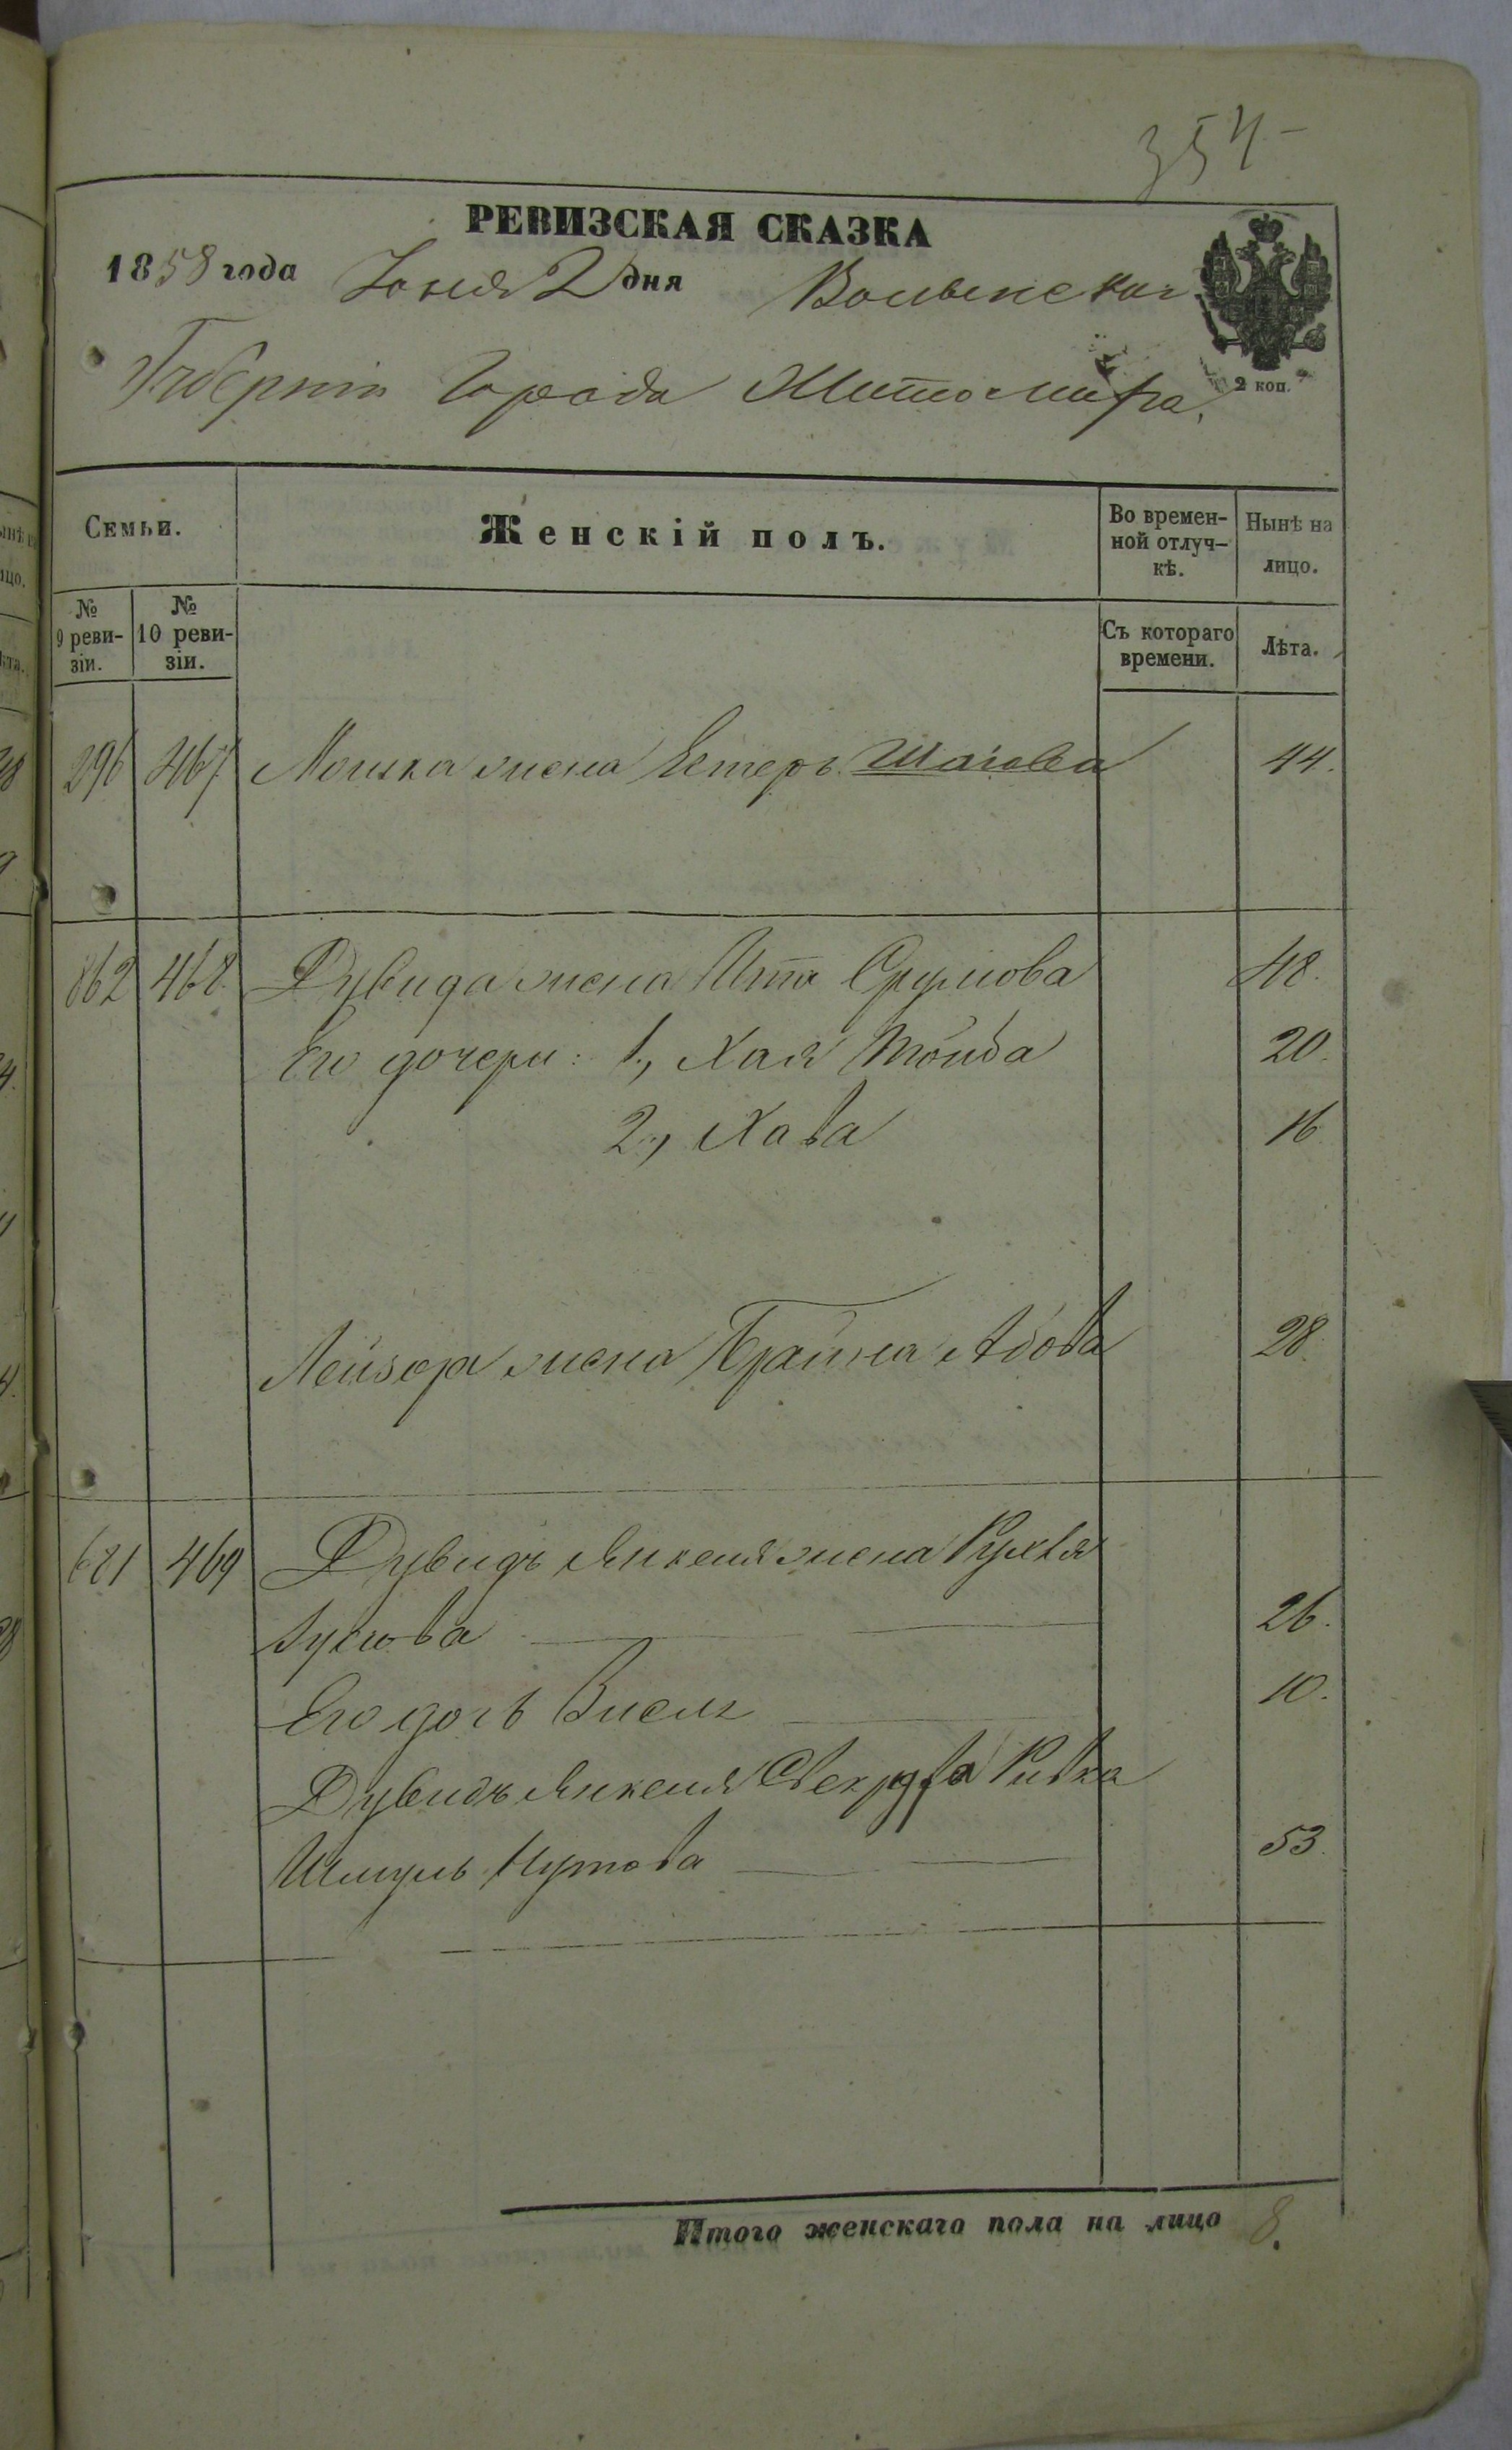 354
РЕВИЗСКАЯ СКАЗКА
1858 года Іюня 2 дня Волынской
2 коп.
Губерніи Города Житомира,
Семьи.
Женскій полъ.
Во времен-
ной отлуч-
кѣ.
Нынѣ на
лицо.
№
9 реви-
зіи.
№
10 реви-
зіи.
Съ котораго
времени.
Лѣта.
296 467 Мошка жена Естеръ 44.
862 468 Дувида жена Ита Срулова 48.
Его дочери: 1, Хая Тойба 20.
2, Хава 16
Лейзора жена Брайна Абова 28.
621 469 Дувидъ Янкеля жена Рухля
26.
Его дочь 10.
Дувидъ Янкеля Свекрова Ривка
Шмуль Нутова 53.
Итого женскаго пола на лицо 8.